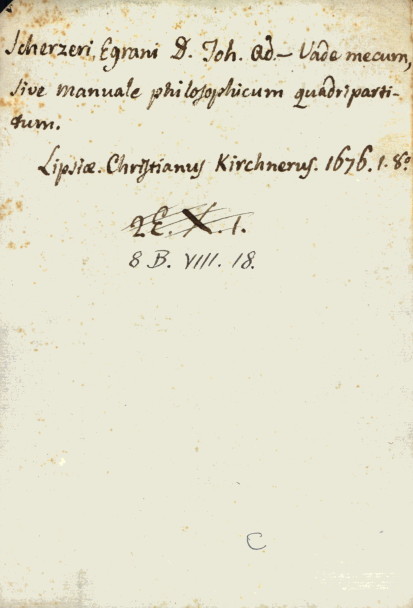 Scherzeri, Egrani D. Joh. Ad.– Vade mecum,
sive manuale philosophicum quadriparti-
tum.
Lipsiæ. Christianus Kirchnerus. 1676. 1. 8º
2E. X. 1.
8 B. VIII. 18.
C